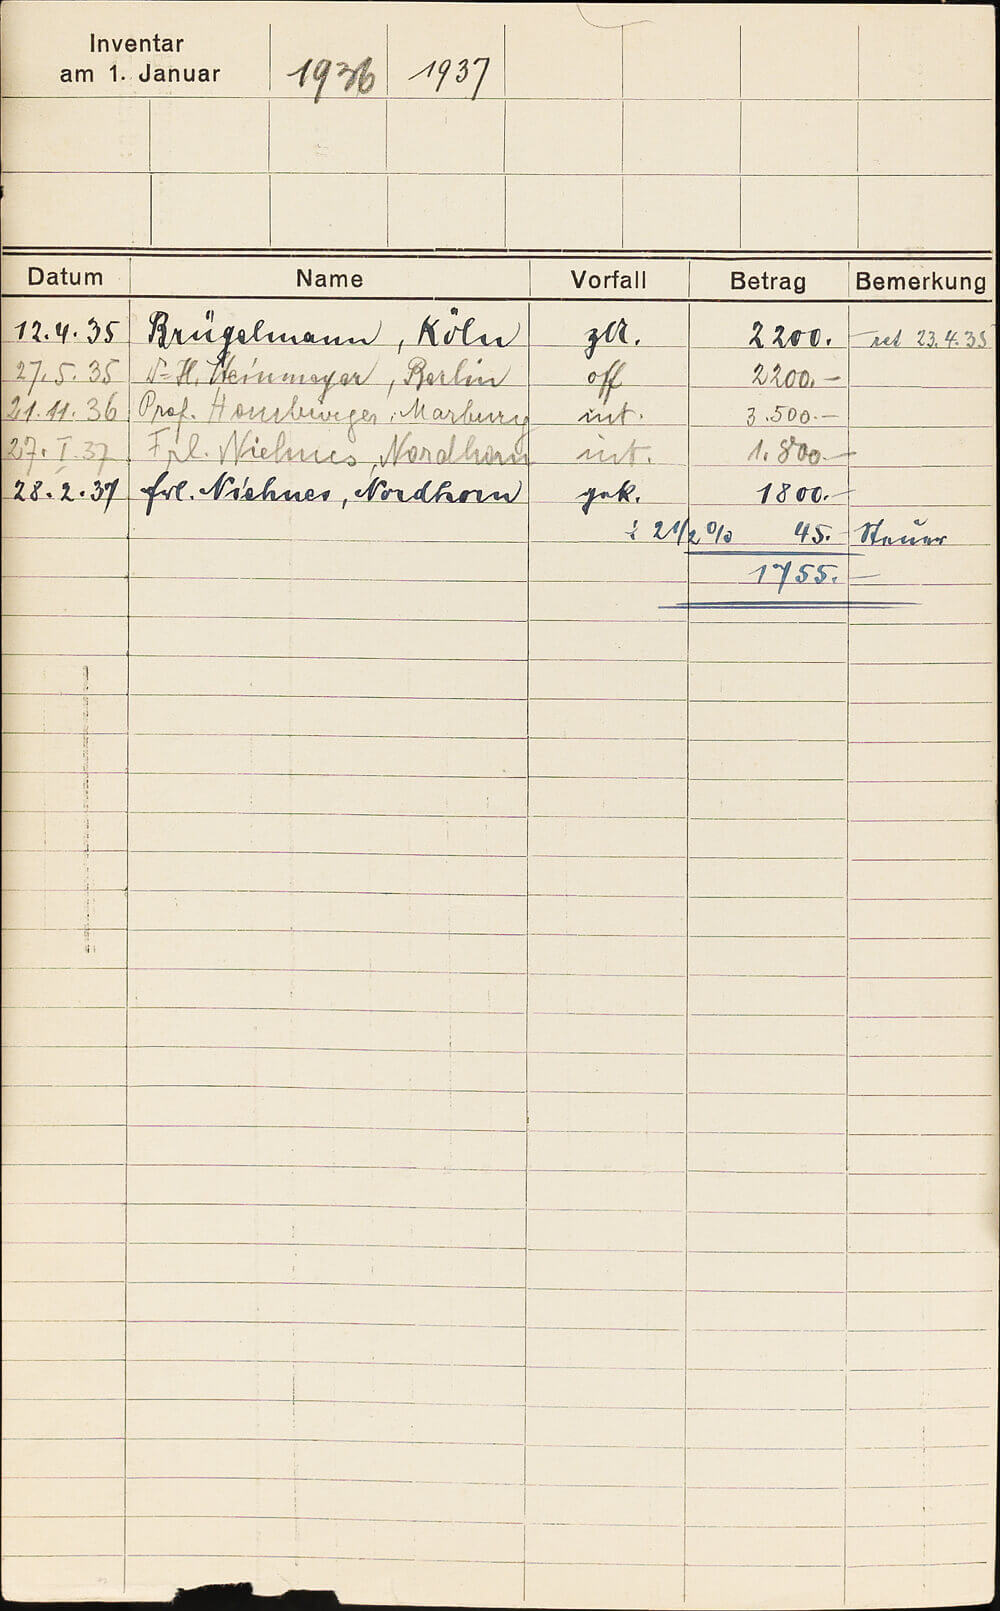 Inventar
am 1. Januar 1936 1937
Datum Name Vorfall Betrag Bemerkung
12.4.35 Brügelmann, Köln z.A. 2200.— ret 23.4.35
27.5.35 Dr. H. Weinmeyer, Berlin off 2200.—
21.11.36 Prof. Hamburger, Marburg int. 3.500.—
27.I.37 Frl. Niehues, Nordhorn int. 1.800.—
28.2.37 Frl. Niehues, Nordhorn gek. 1800.—
÷ 2 1/2 % 45.— Steuer
1755.—